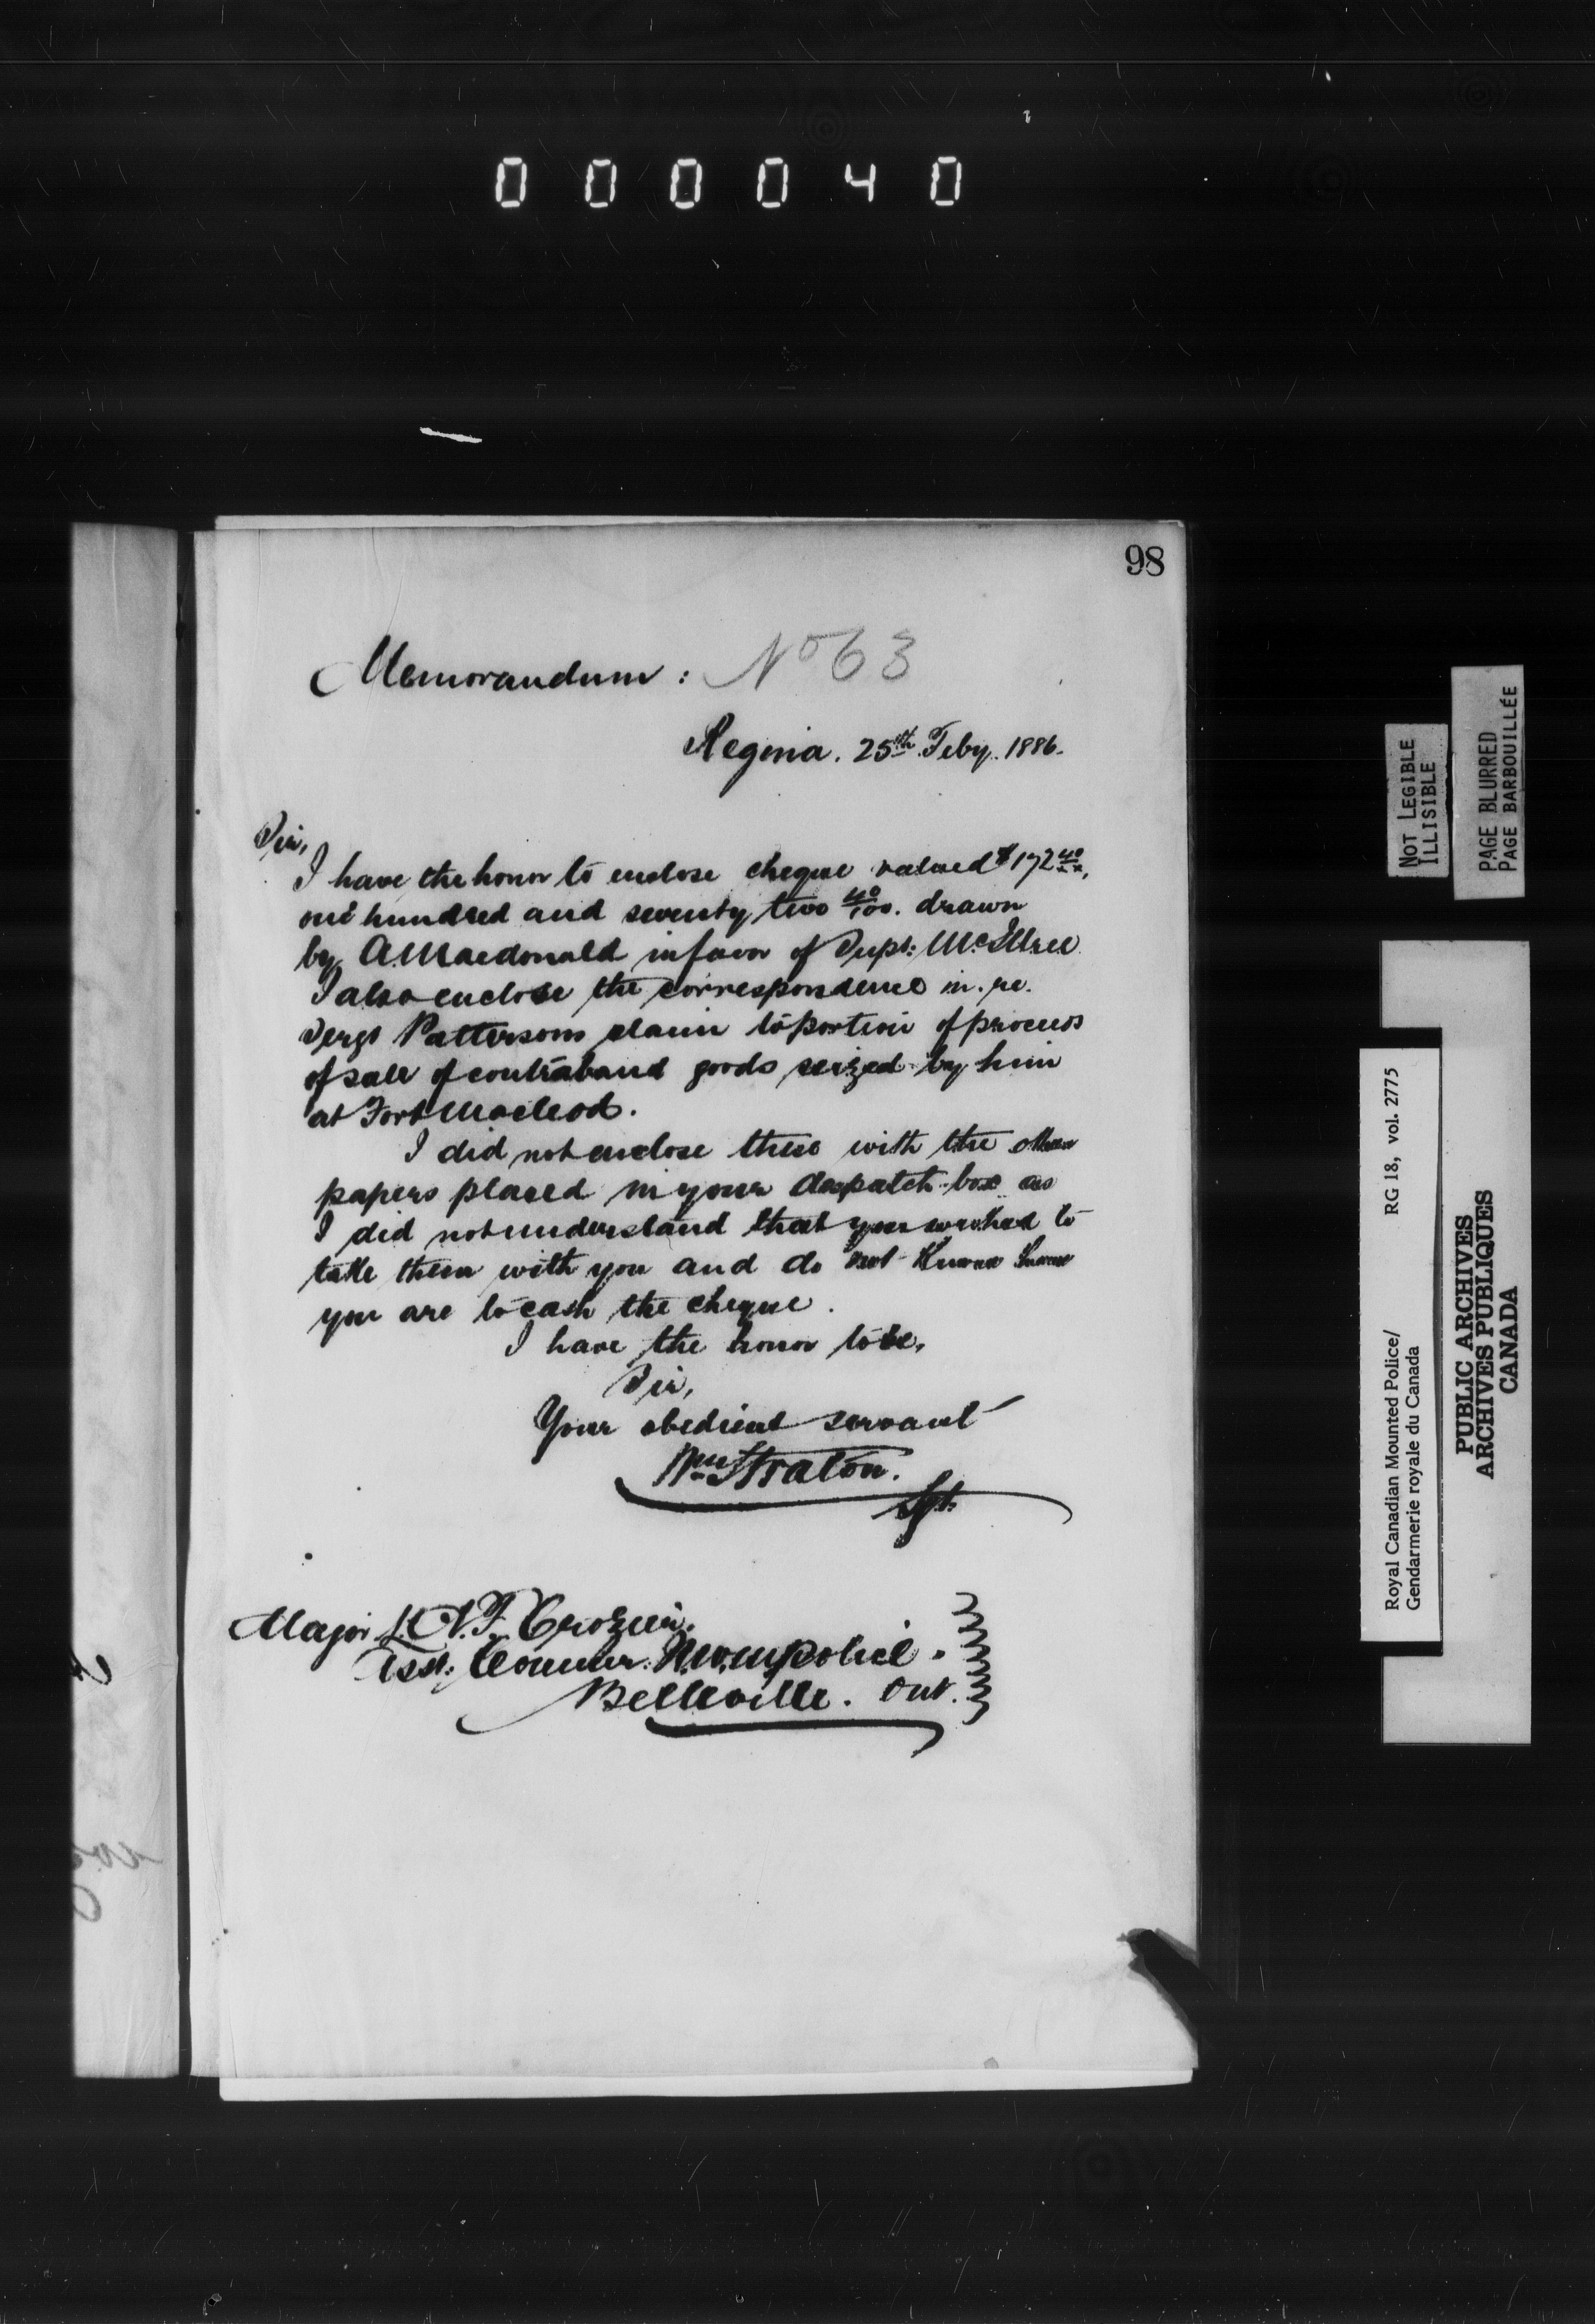 000040
98
Memorandum: No 63
Regina. 25th Feby. 1886.
Sir,
I have the honor to enclose cheque valued $172 40/xx,
one hundred and seventy two 40/100. drawn
by A. Macdonald in favor of Supt: McIllree
I also enclose the correspondence in. re.
Sergt Pattersons claim to portion of procees
of sale of contraband goods seized by him
at Fort Macleod.
I did not enclose these with the other
papers placed in your despatch-box as
I did not understand that you wished to
take them with you and do not know how
you are to cash the cheque.
I have the honor to be,
Sir,
Your obedient servant
Wm Straton.
Sgt.
Major L.N.F. Crozier.
Asst: Commr. N.W.M. Police.
Belleville. Ont.
NOT LEGIBLE
ILLISIBLE
PAGE BLURRED
PAGE BARBOUILLÉE
Royal Canadian Mounted Police/ RG 18, vol. 2775
Gendarmerie royale du Canada
PUBLIC ARCHIVES
ARCHIVES PUBLIQUES
CANADA